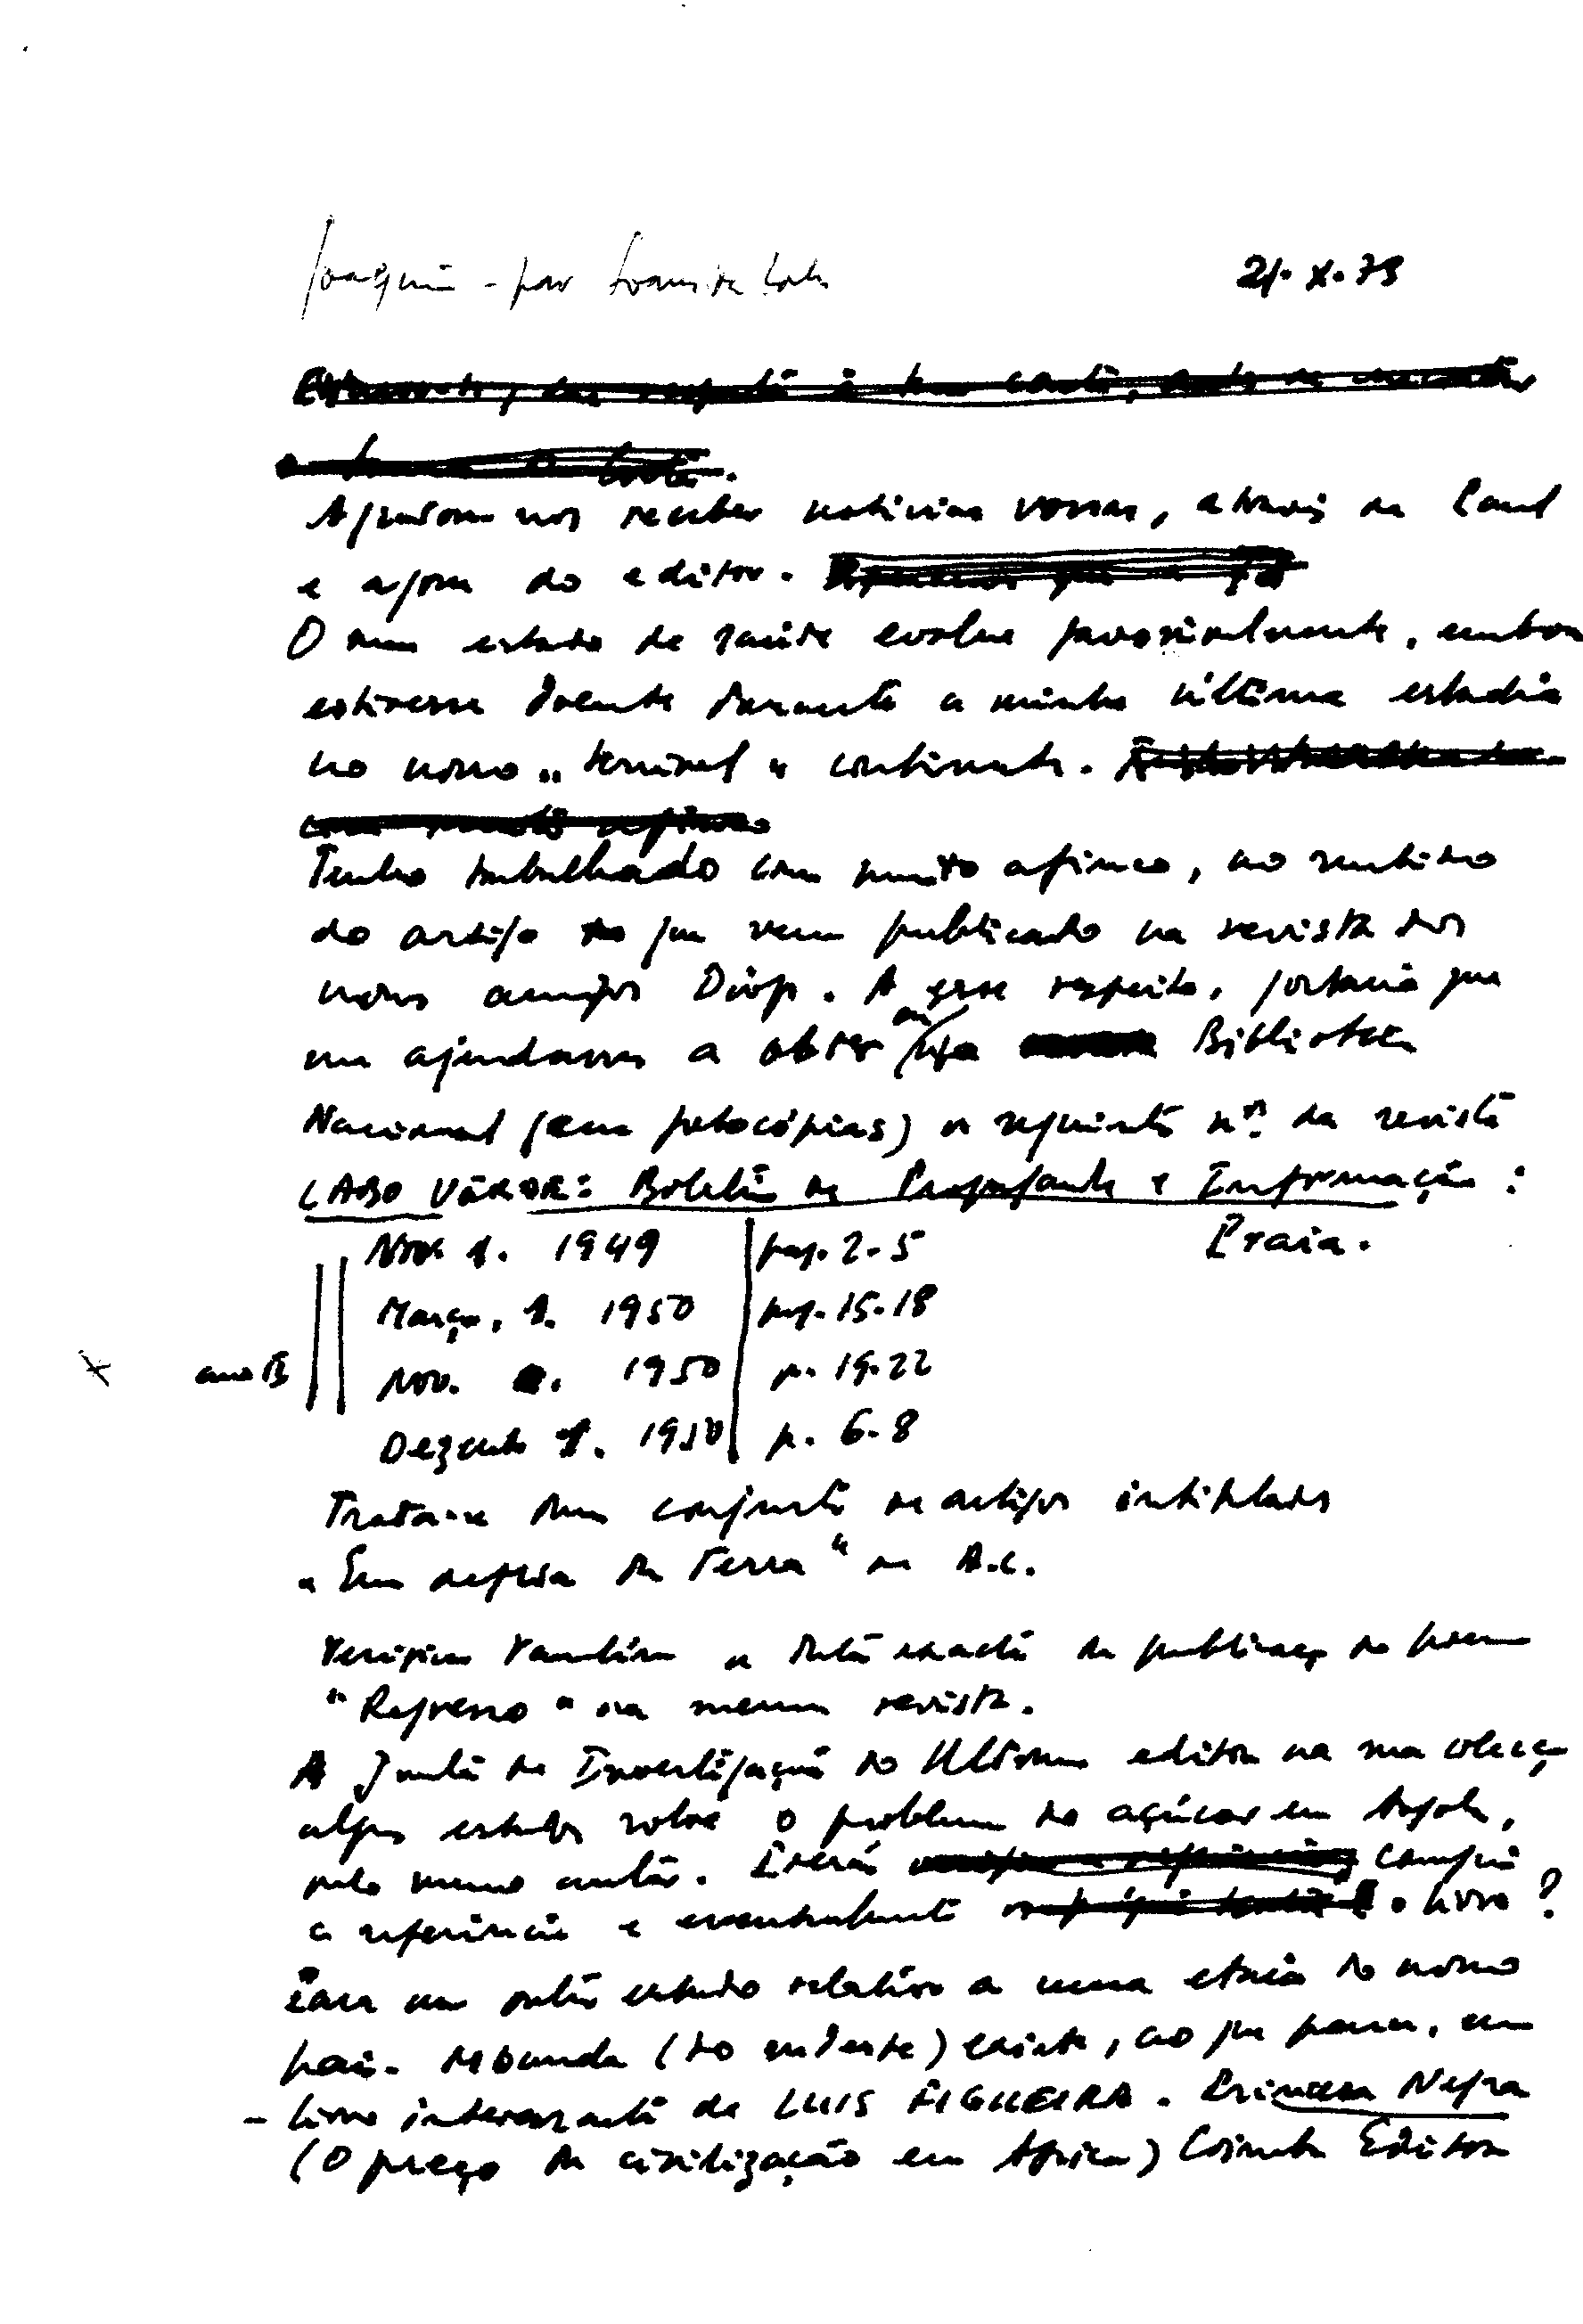 Joaquim - por Soares da Costa 21. X. 73
Agradou-nos receber notícias vossas, através da
e agora do editor.
O meu estado de saúde evolue favoravelmente, embora
estivesse doente durante a minha última estadia
no nosso "terrível" continente.
Tenho trabalhado com muito afinco, no sentido
do artigo que vem publicado na revista dos
nossos amigos Diop. A esse respeito, gostaria que
me ajudasses a obter na Biblioteca
Nacional (em fotocópias) os seguintes nºs da revista
CABO VERDE: Boletim de Propaganda e Informação:
Praia.
Nov. 1. 1949 pag. 2-5
Março, 1. 1950 pag. 15-18
ano II Nov. 1950 p. 19-22
Dezembro 1. 1950 p. 6-8
Trata-se dum conjunto de artigos intitulados
"Em defesa da Terra" de A.C.
Verificar também a data exacta da publicação do poema
"Regresso" na mesma revista.
A Junta de Investigação do Ultramar editou na sua colecção
alguns estudos sobre o problema do açúcar em Angola,
pelo mesmo autor. Poderás conseguir
a referência e eventualmente o livro?
Para um outro estudo relativo a uma etnia do nosso
país. Mbunda (do sudeste) existe, ao que parece, um
- livro interessante de LUIS FIGUEIRA. Princesa Negra
(O preço da civilização em África) Coimbra Editora